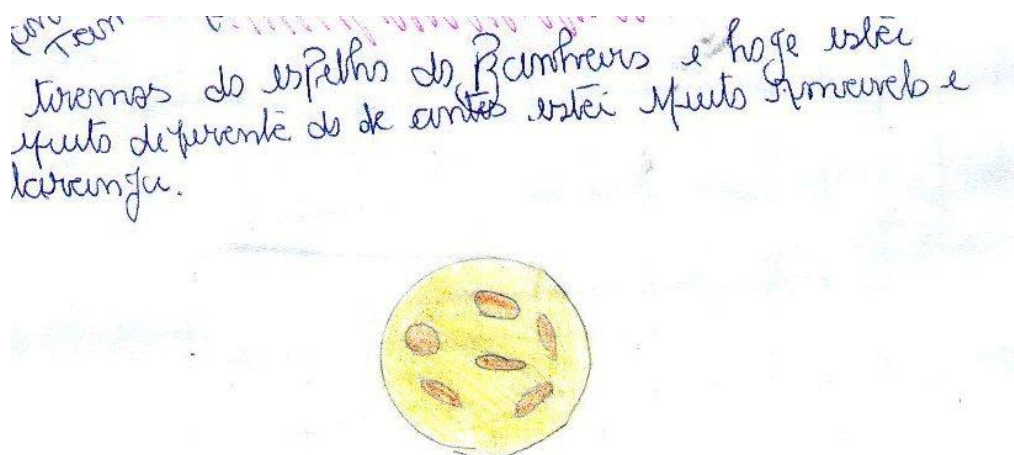 tiremos do esPelho do Banheiro e hoge estái
Muito diferente do de antes estái Muito Amarelo e
laranja.